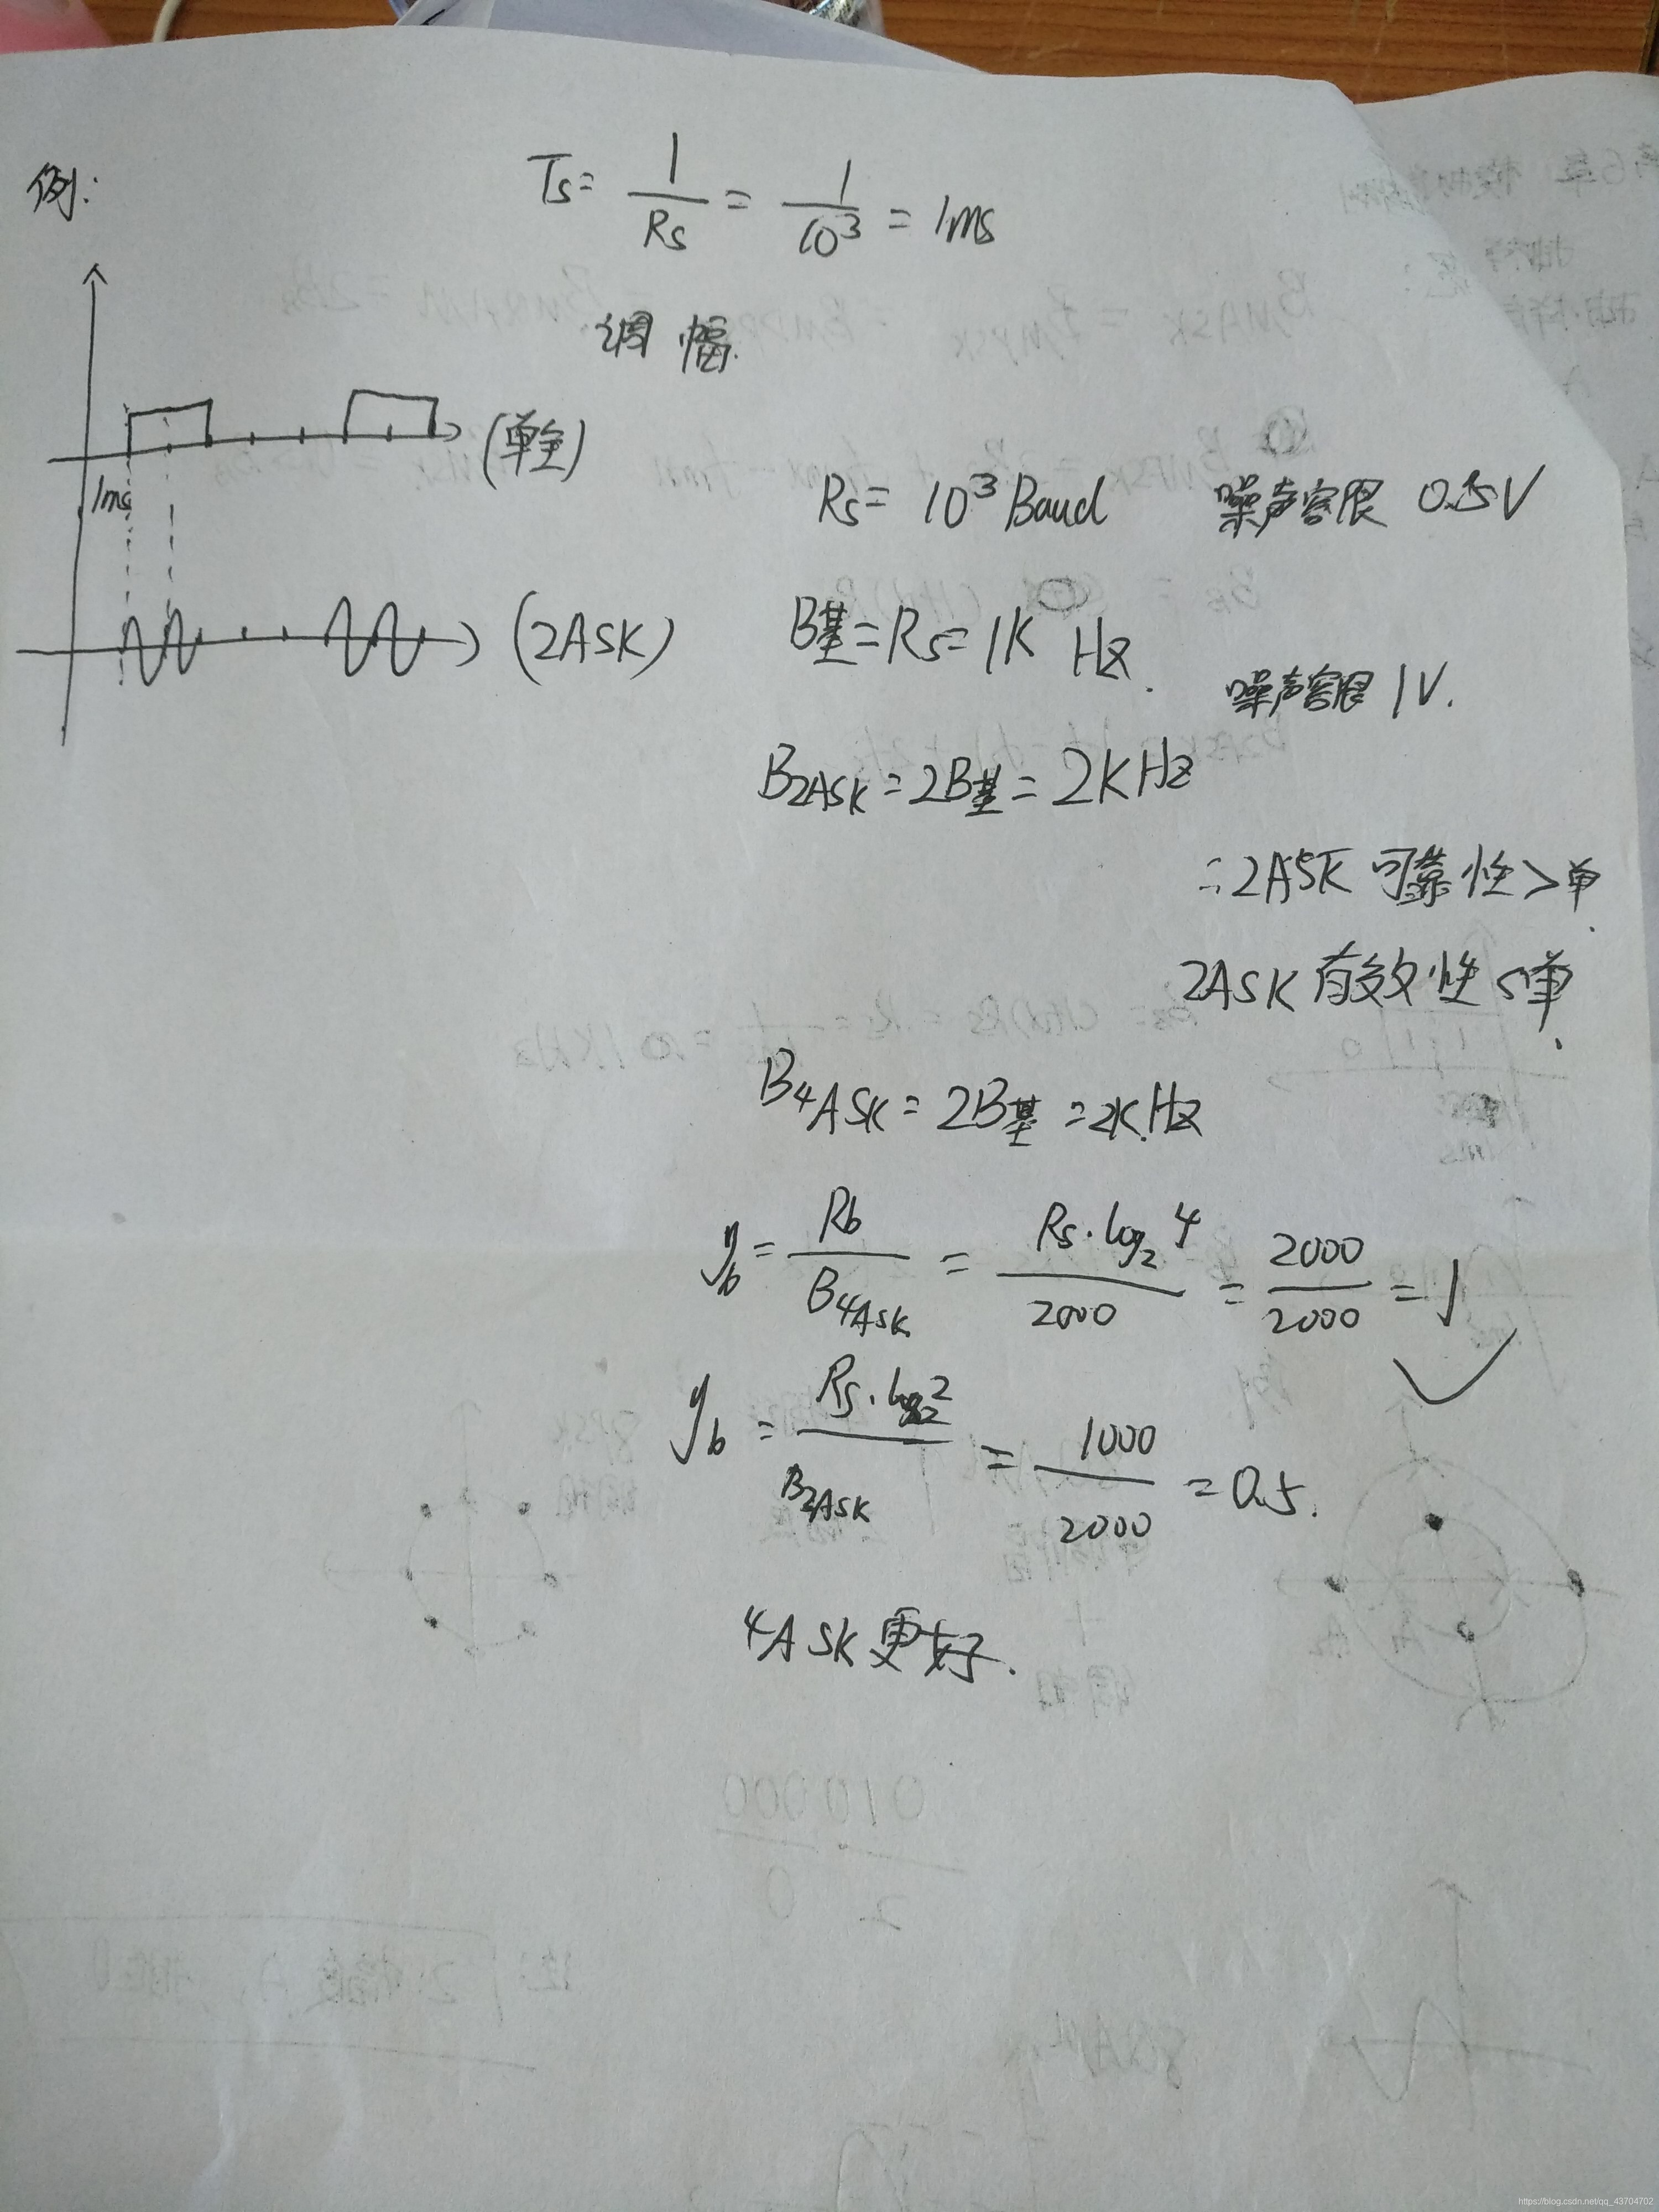 例:
Ts = 1/Rs = 1/10³ = 1ms
调幅.
(单全)
1ms
Rs = 10³ Baud 噪声容限 0.5V
(2ASK) B基 = Rs = 1K Hz.
噪声容限 1V.
B2ASK = 2B基 = 2KHz
∴2ASK 可靠性>单.
2ASK 有效性<单.
B4ASK = 2B基 = 2K.Hz
ηb = Rb/B4ASK = Rs·log₂4/2000 = 2000/2000 = 1
ηb = Rs·log₂2/B2ASK = 1000/2000 = 0.5.
4ASK更好.
https://blog.csdn.net/qq_43704702